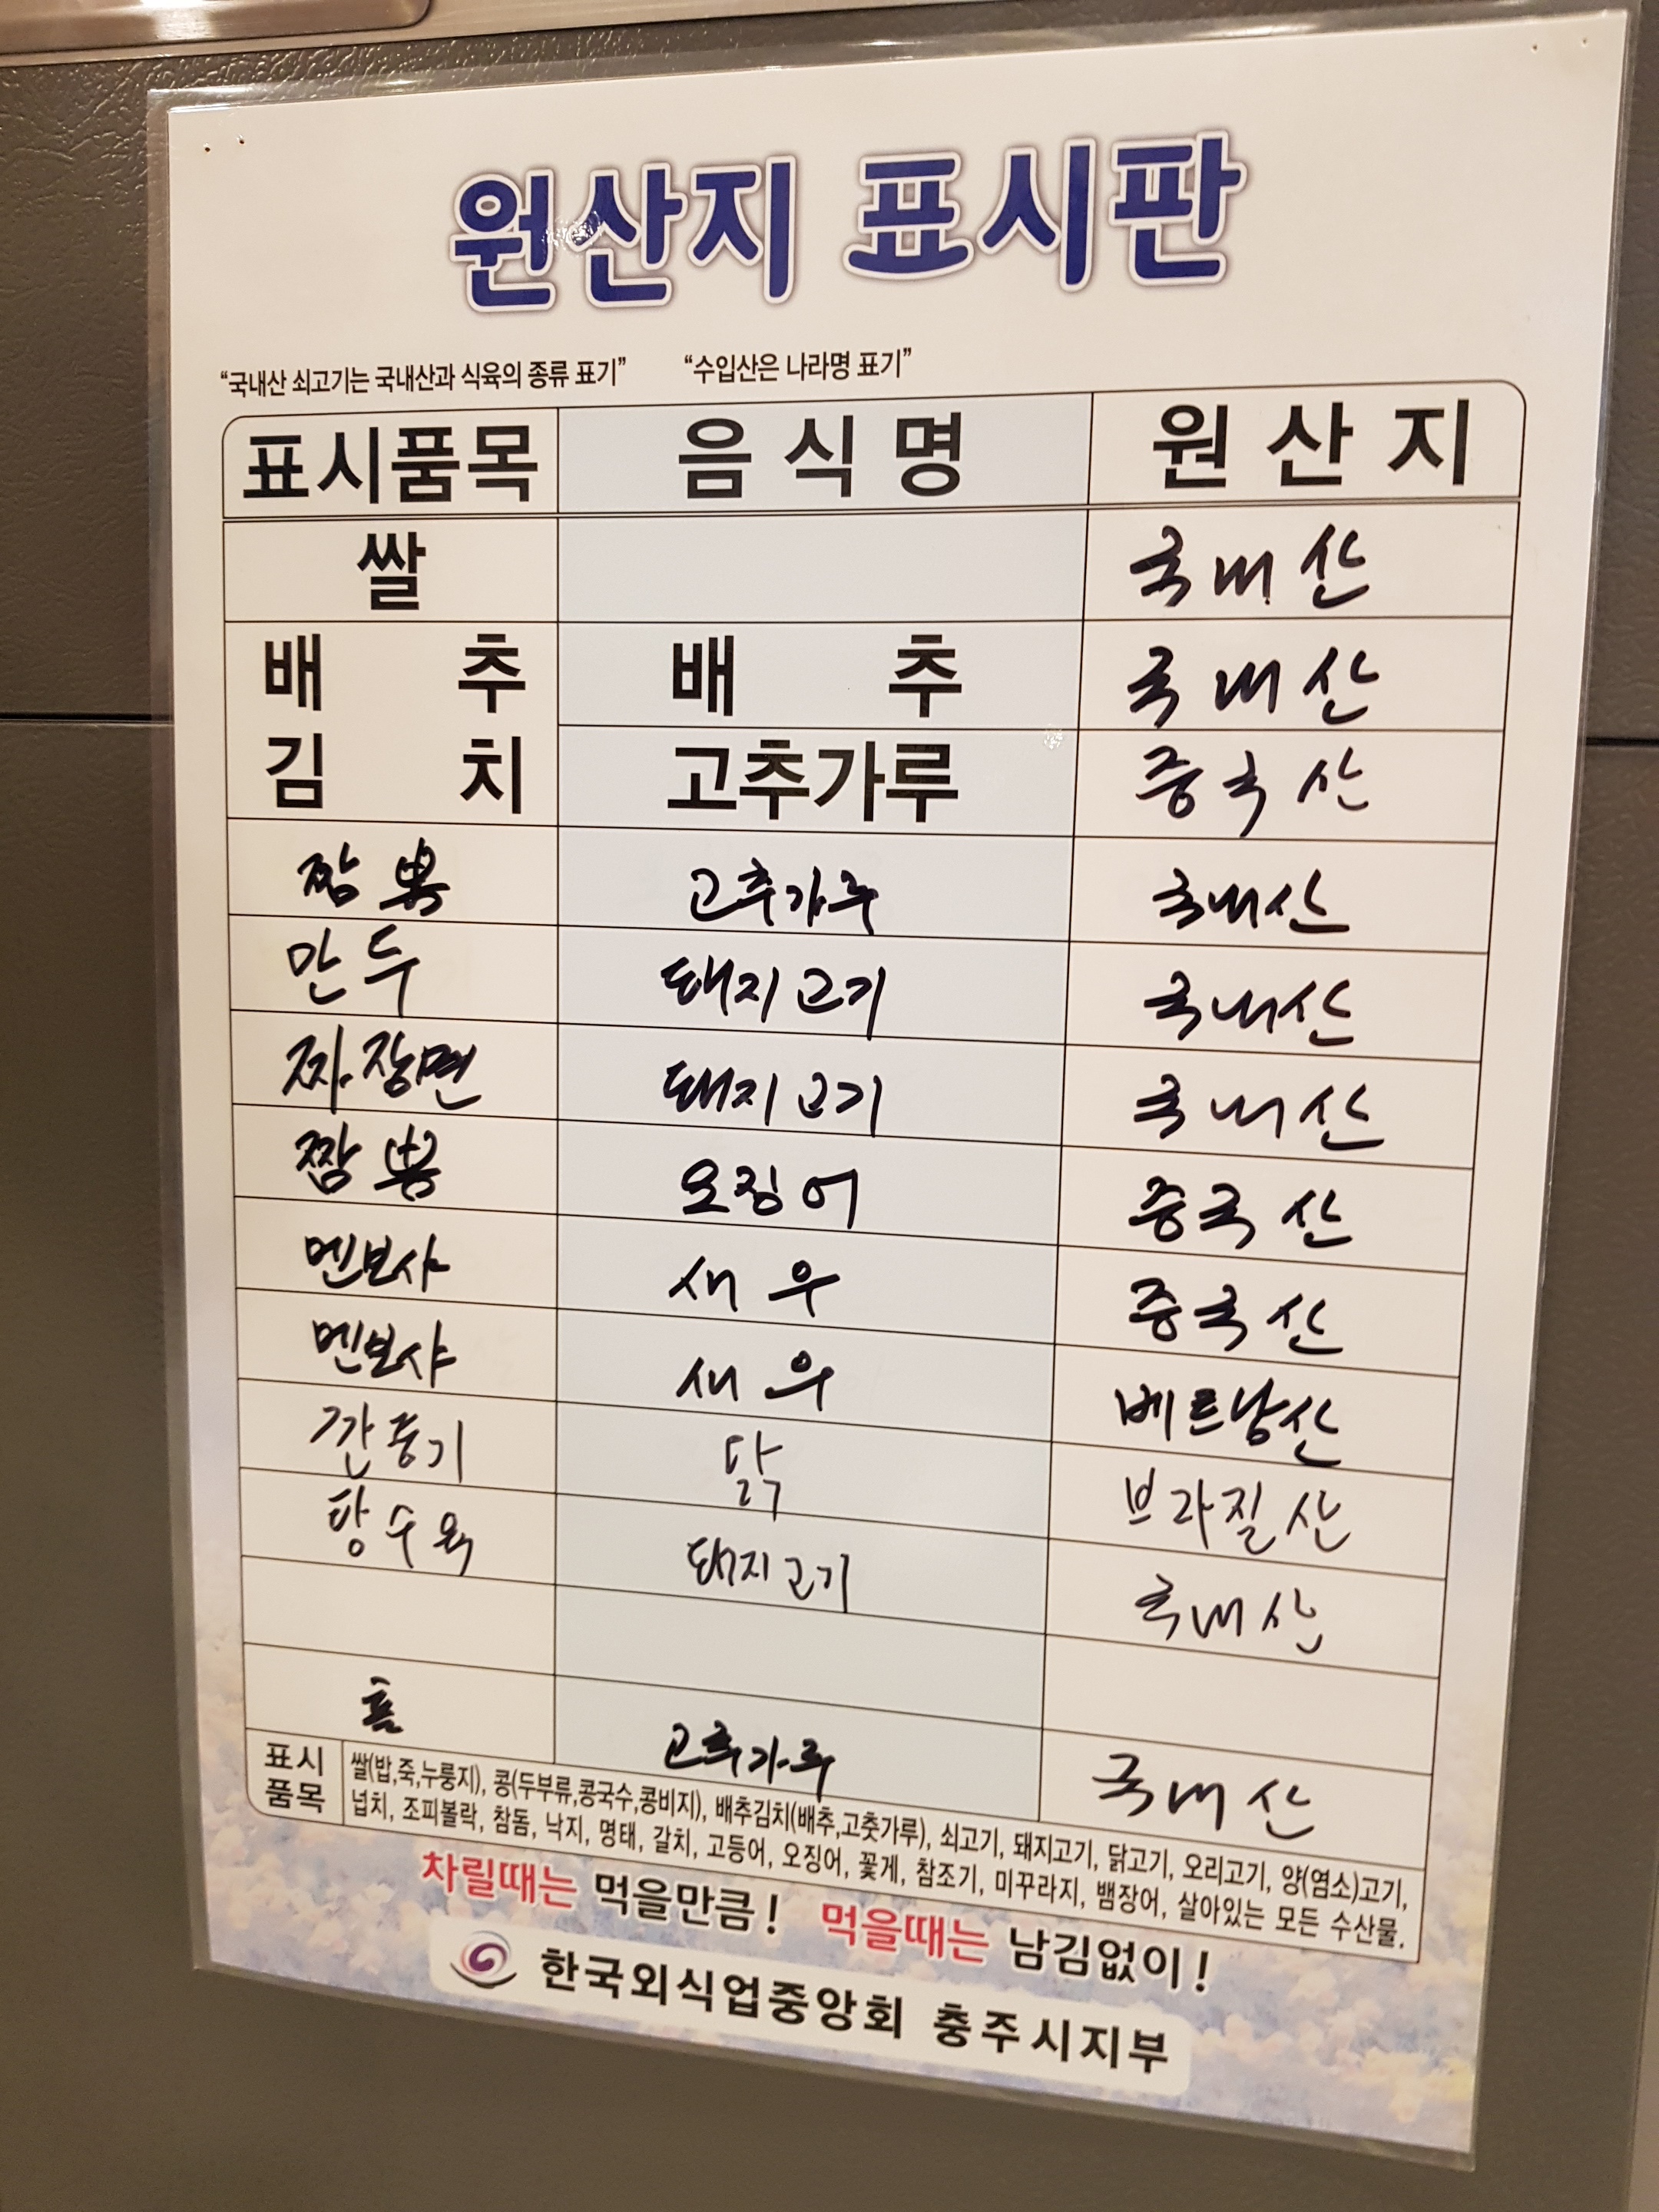 원산지 표시판
“국내산 쇠고기는 국내산과 식육의 종류 표기” “수입산은 나라명 표기”
표시품목 음식명 원산지
쌀 국내산
배추 배추 국내산
김치 고추가루 중국산
짬뽕 고추가루 국내산
만두 돼지고기 국내산
짜장면 돼지고기 국내산
짬뽕 오징어 중국산
멘보샤 새우 중국산
멘보샤 새우 베트남산
깐풍기 닭 브라질산
탕수육 돼지고기 국내산
고추가루 국내산
표시 쌀(밥,죽,누룽지), 콩(두부류,콩국수,콩비지), 배추김치(배추,고춧가루), 쇠고기, 돼지고기, 닭고기, 오리고기, 양(염소)고기,
품목 넙치, 조피볼락, 참돔, 낙지, 명태, 갈치, 고등어, 오징어, 꽃게, 참조기, 미꾸라지, 뱀장어, 살아있는 모든 수산물.
차릴때는 먹을만큼! 먹을때는 남김없이!
한국외식업중앙회 충주시지부